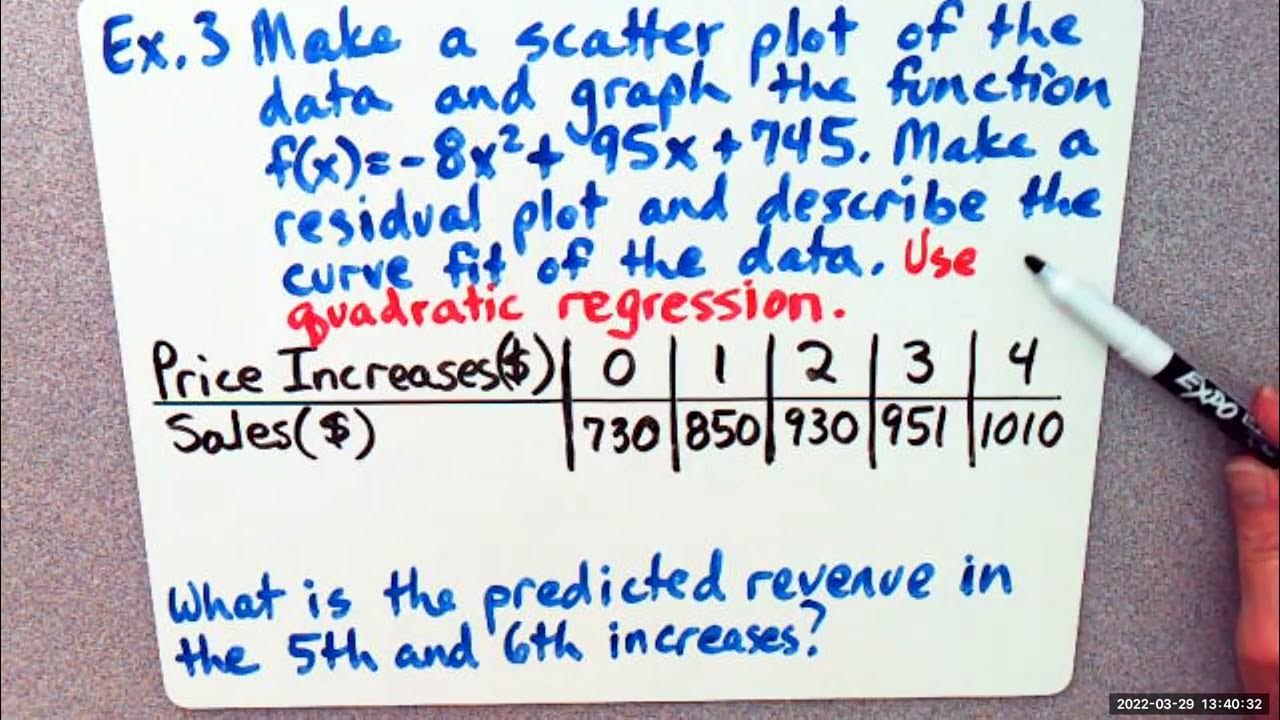 Ex. 3 Make a scatter plot of the
data and graph the function
f(x)=-8x²+95x+745. Make a
residual plot and describe the
curve fit of the data. Use
quadratic regression.
Price Increases($) 0 1 2 3 4
Sales($) 730 850 930 951 1010
What is the predicted revenue in
the 5th and 6th increases?
EXPO
2022-03-29 13:40:32